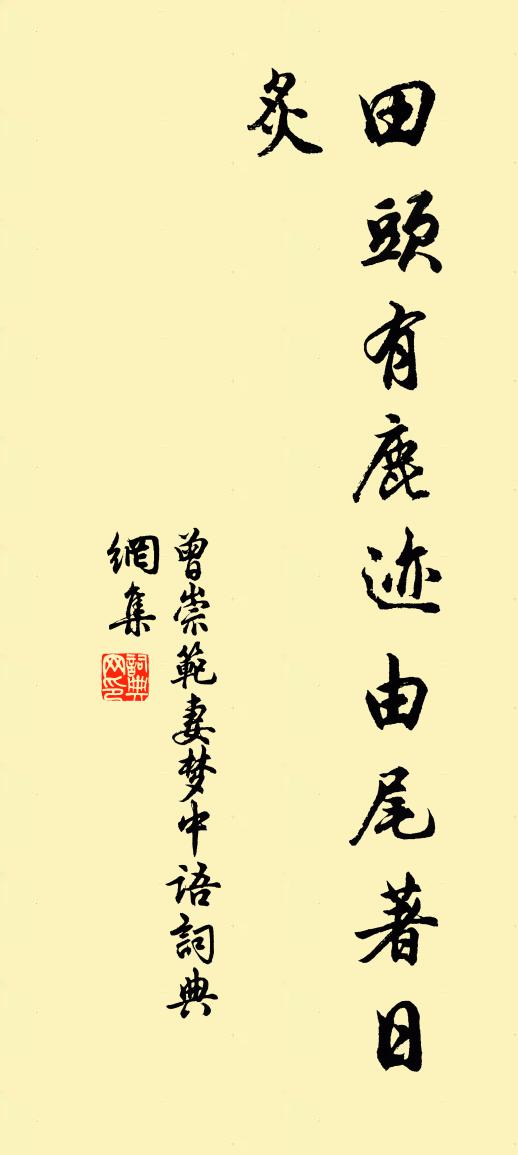 田頭有鹿迹由尾著日
炙
曾崇範妻梦中语詞典
網集
詞典
网印